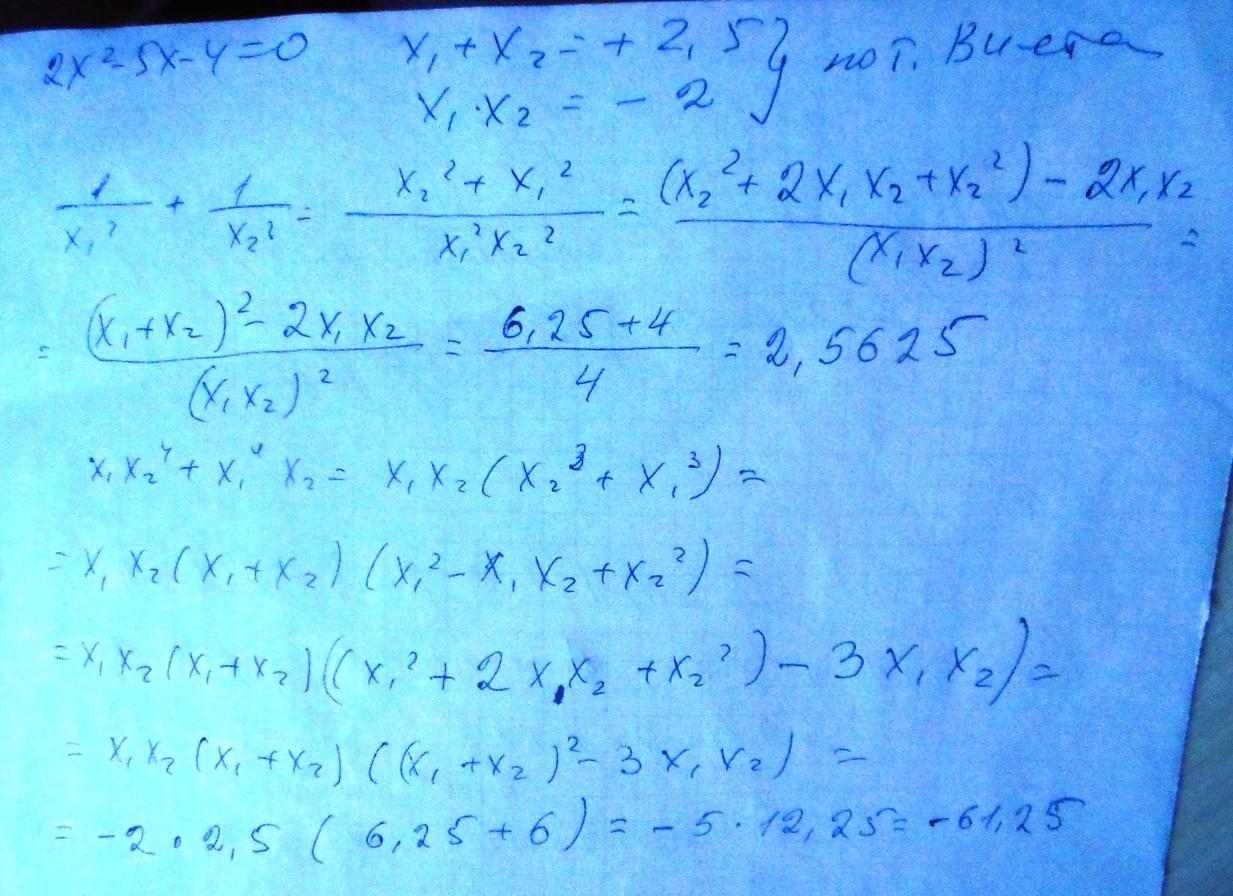 2x²-5x-4=0 x₁+x₂=+2,5 } по т. Виета
x₁·x₂=-2
1/x₁² + 1/x₂² = (x₂²+x₁²)/(x₁²x₂²) = ((x₂²+2x₁x₂+x₂²)-2x₁x₂)/(x₁x₂)² =
= ((x₁+x₂)²-2x₁x₂)/(x₁x₂)² = (6,25+4)/4 = 2,5625
x₁x₂⁴+x₁⁴x₂= x₁x₂(x₂³+x₁³)=
=x₁x₂(x₁+x₂)(x₁²-x₁x₂+x₂²)=
=x₁x₂(x₁+x₂)((x₁²+2x₁x₂+x₂²)-3x₁x₂)=
=x₁x₂(x₁+x₂)((x₁+x₂)²-3x₁x₂)=
=-2·2,5(6,25+6)=-5·12,25=-61,25